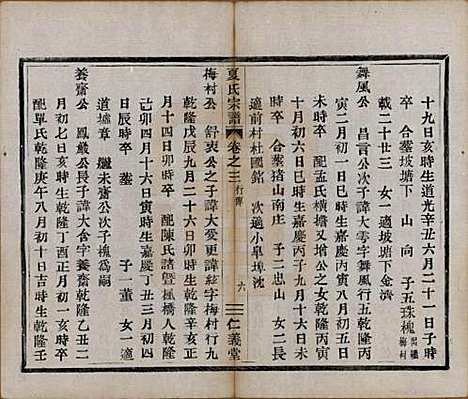 十九日亥時生道光辛丑六月二十一日子時
卒 合葬坡塘下 山 向 子五珠槐 出繼梅村
載二十二三 女一適坡塘下金濟
舞風公 昌言公次子諱大字舞風行五乾隆丙
寅二月初一日巳時生嘉慶丙寅八月初五日
未時卒 配孟氏橫擔又增公之女乾隆己巳
十月初六日巳時生嘉慶九月十六日未時
卒 合葬猪山南庄 子二忠山 女二長
適前村杜國銘 次適小皐埠沈
夏氏宗譜 卷之三 行傳 六 仁義堂
梅村公 舒衷公之子諱大愛更諱鋐字梅村行九
乾隆戊寅九月二十六日卯時生嘉慶辛亥正
月十四日卯時卒 配陳氏諸暨楓橋人乾隆
己卯四月十六日寅時生嘉慶丁丑三月初四
日辰時卒 葬 子一董 女一適
道墟章 繼未齋公次子諱
養齋公 鳳巖公長子諱大含字養齋乾隆乙丑二
月初七日亥時生乾隆丁酉正月初一日亥時
配單氏乾隆庚午八月初十日吉時生乾隆壬